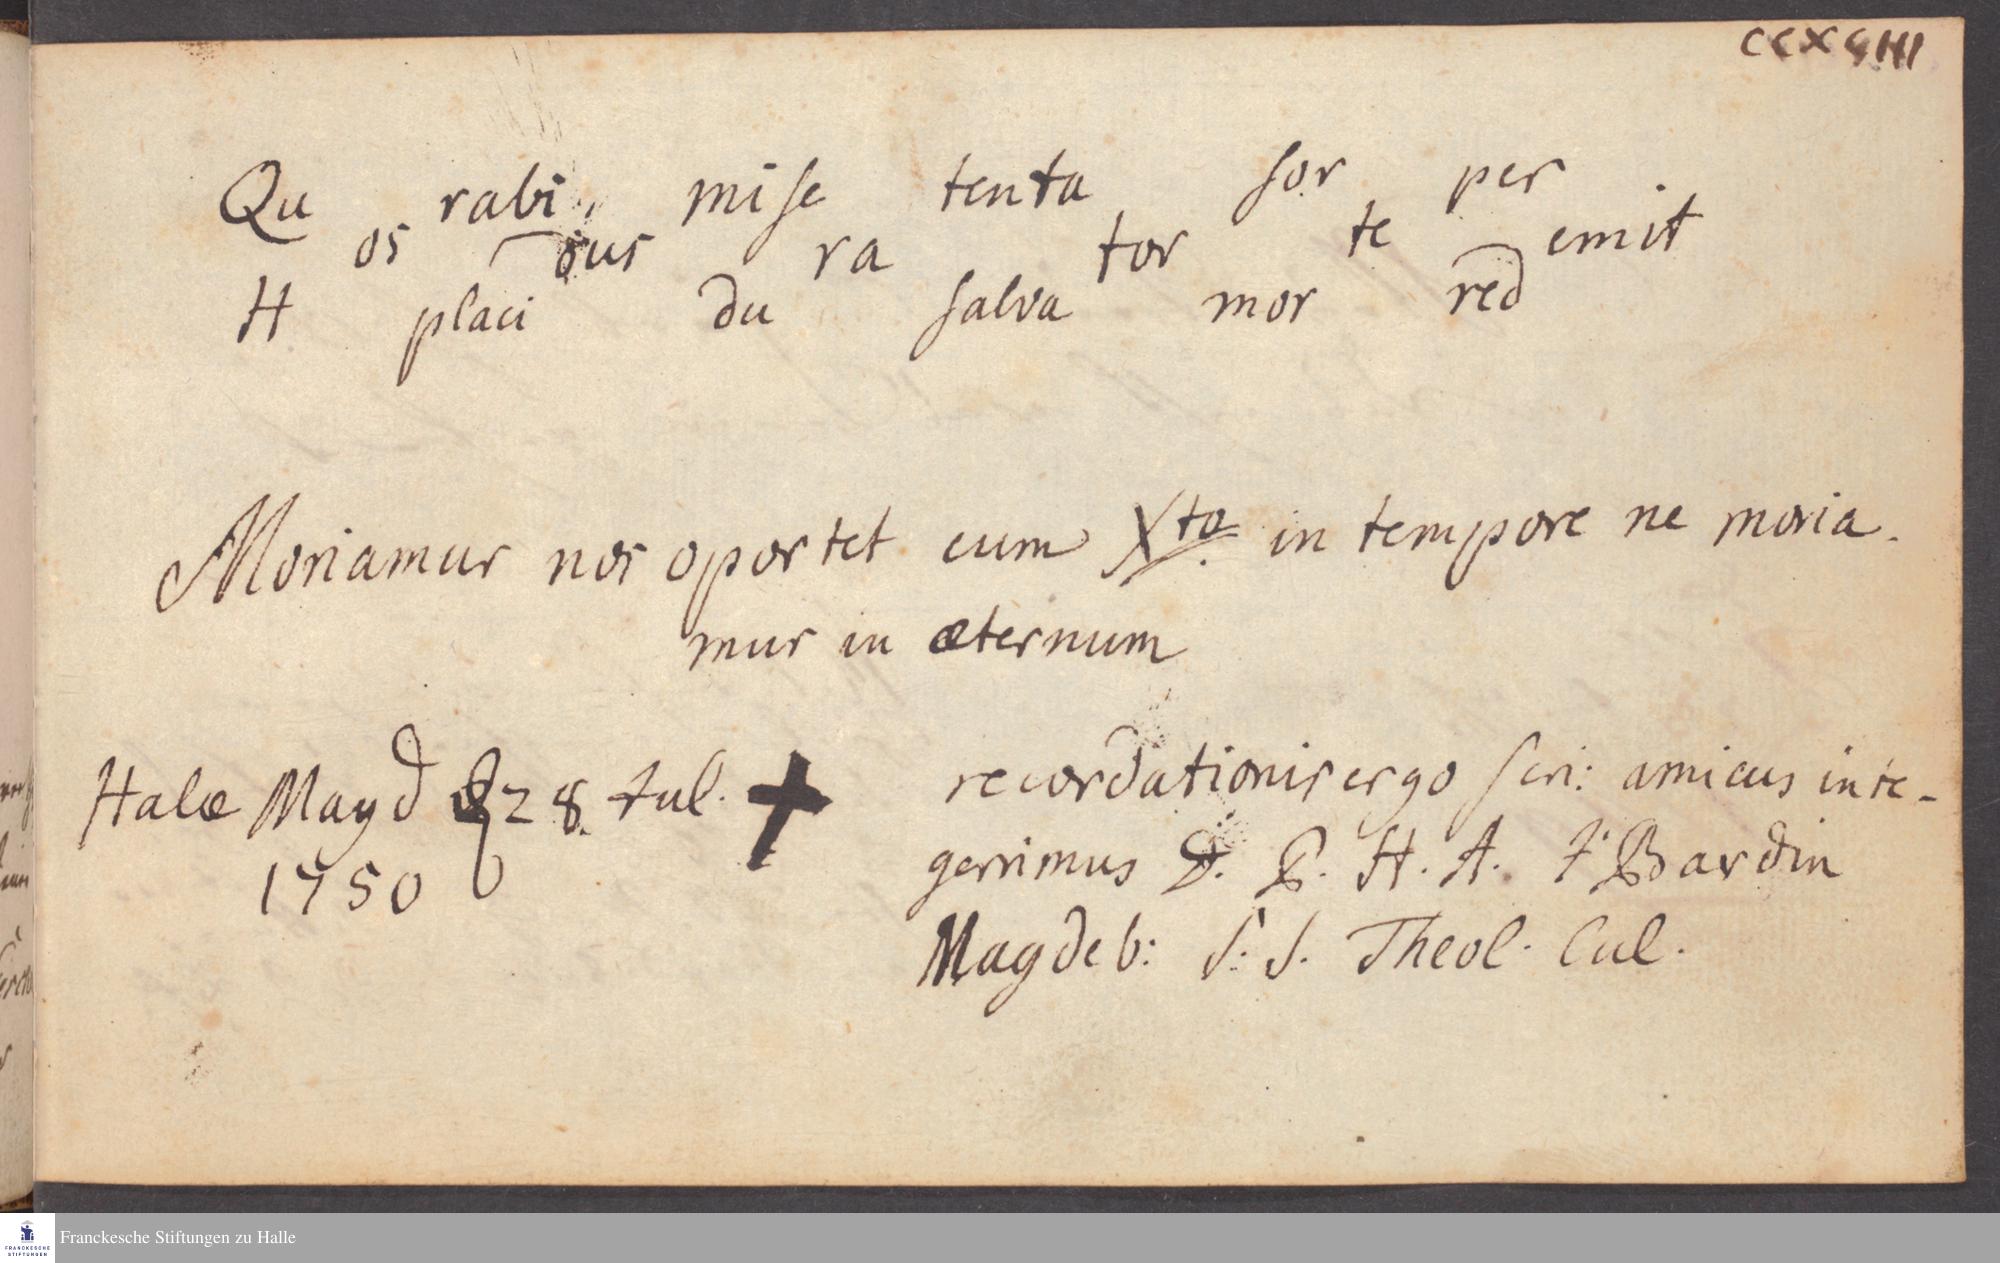 CCXCIII
Qu rabi mise tenta sor per
os dus ra tor te emit
H placi du salva mor red
Moriamur nos oportet cum Xto. in tempore ne moria-
mur in æternum
Halæ Magd d 28. Jul.
1750
recordationis ergo scri: amicus inte-
gerrimus D. P. H. A. J Bardin
Magdeb: S: S. Theol. Cul.
Franckesche Stiftungen zu Halle
FRANCKESCHE
STIFTUNGEN